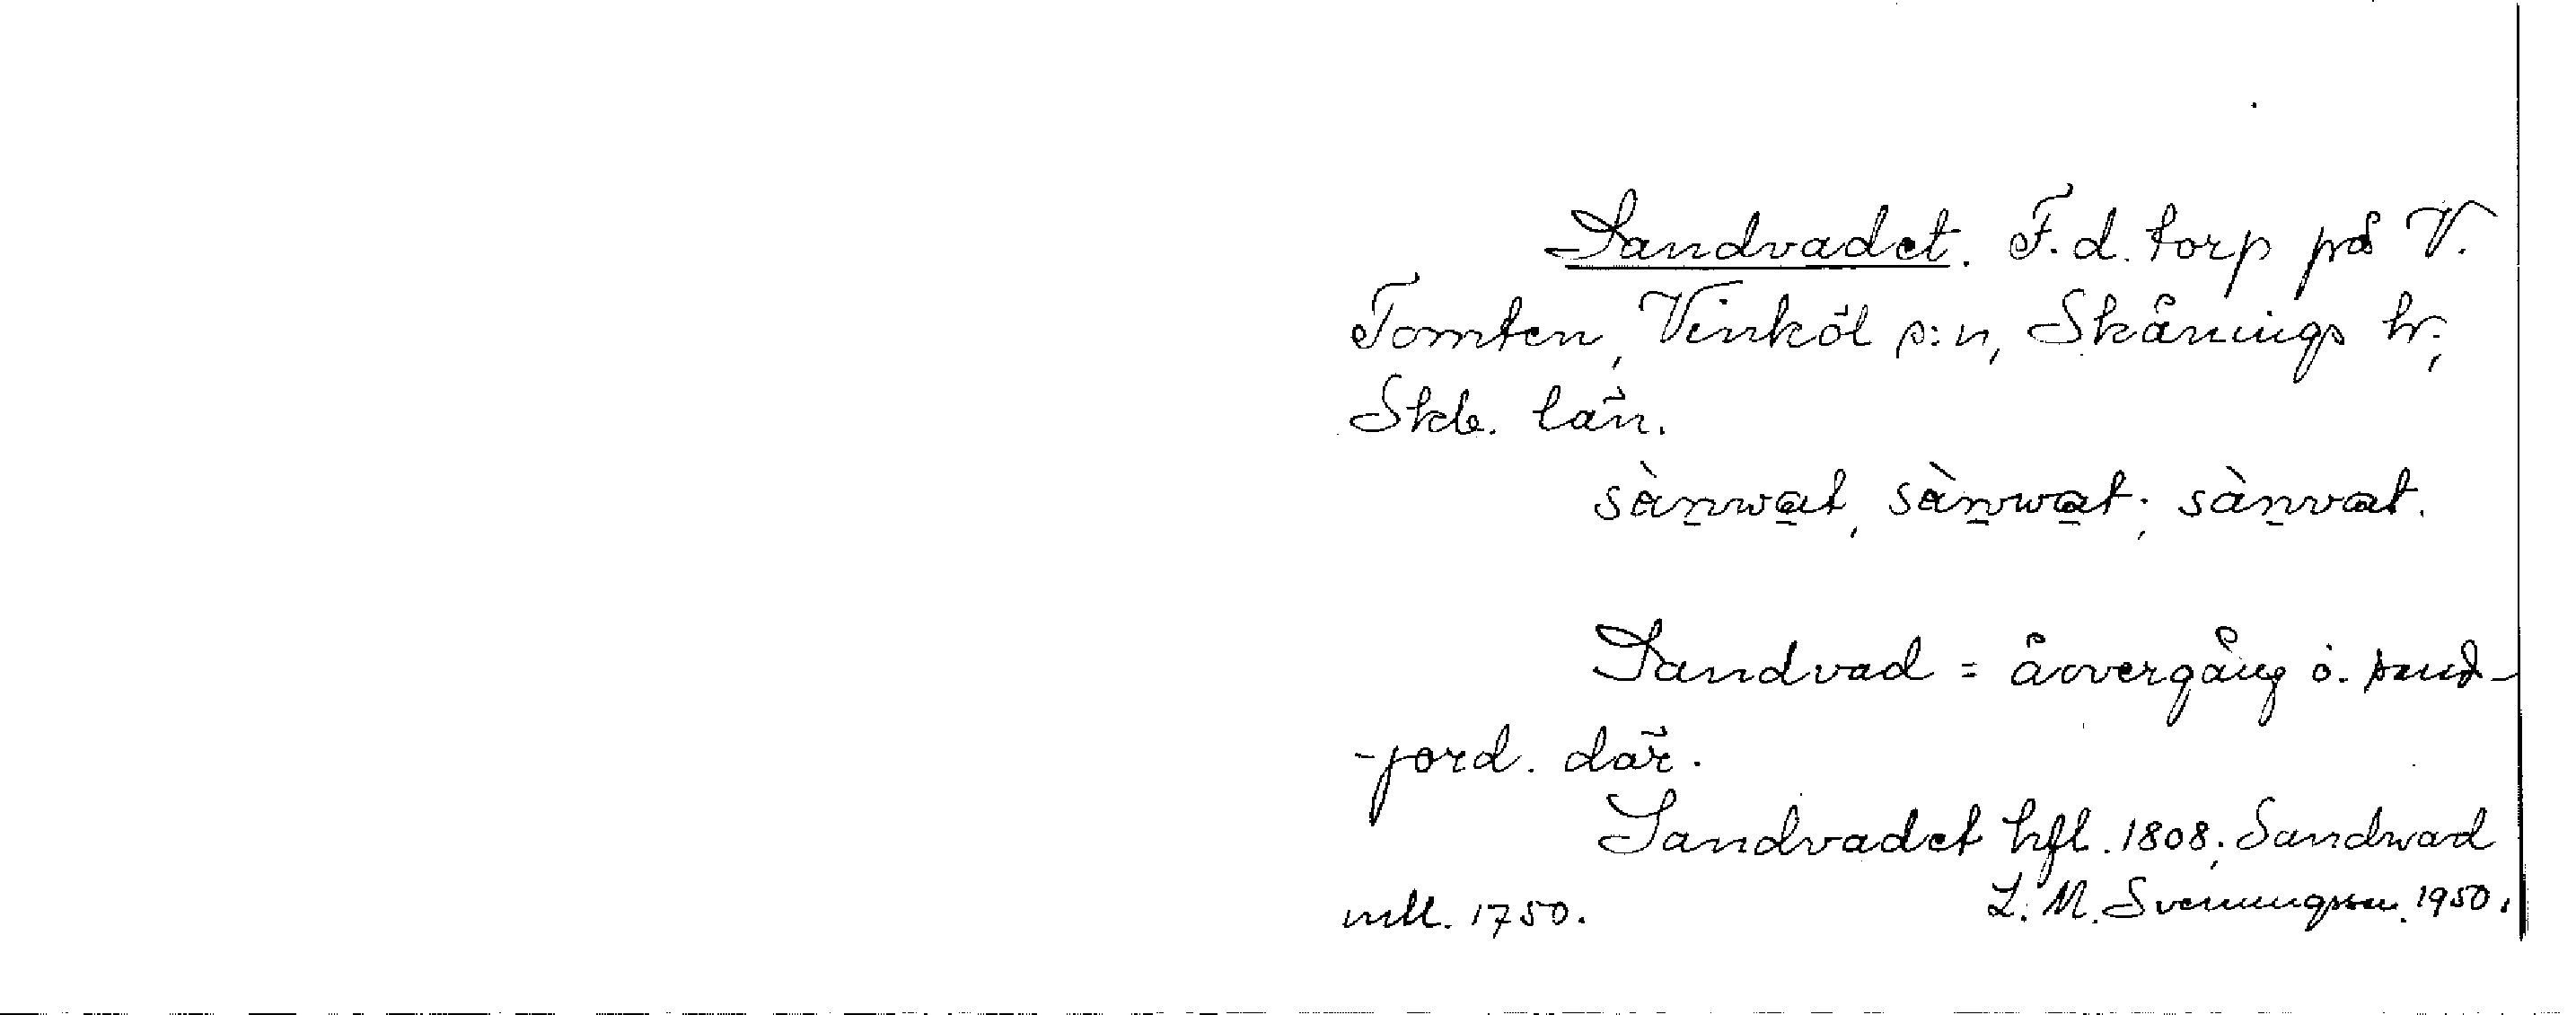 Sandvadet. F.d. torp på V.
Tomten, Vinköl s:n, Skånings hr;
Skb. län.
sànwat, sànwat; sànvat.
Sandvad = åovergång ö. sand-
-jord. där.
Sandvadet hfl. 1808; Sandwad
mll. 1750. L. M. Svenungsson. 1950.